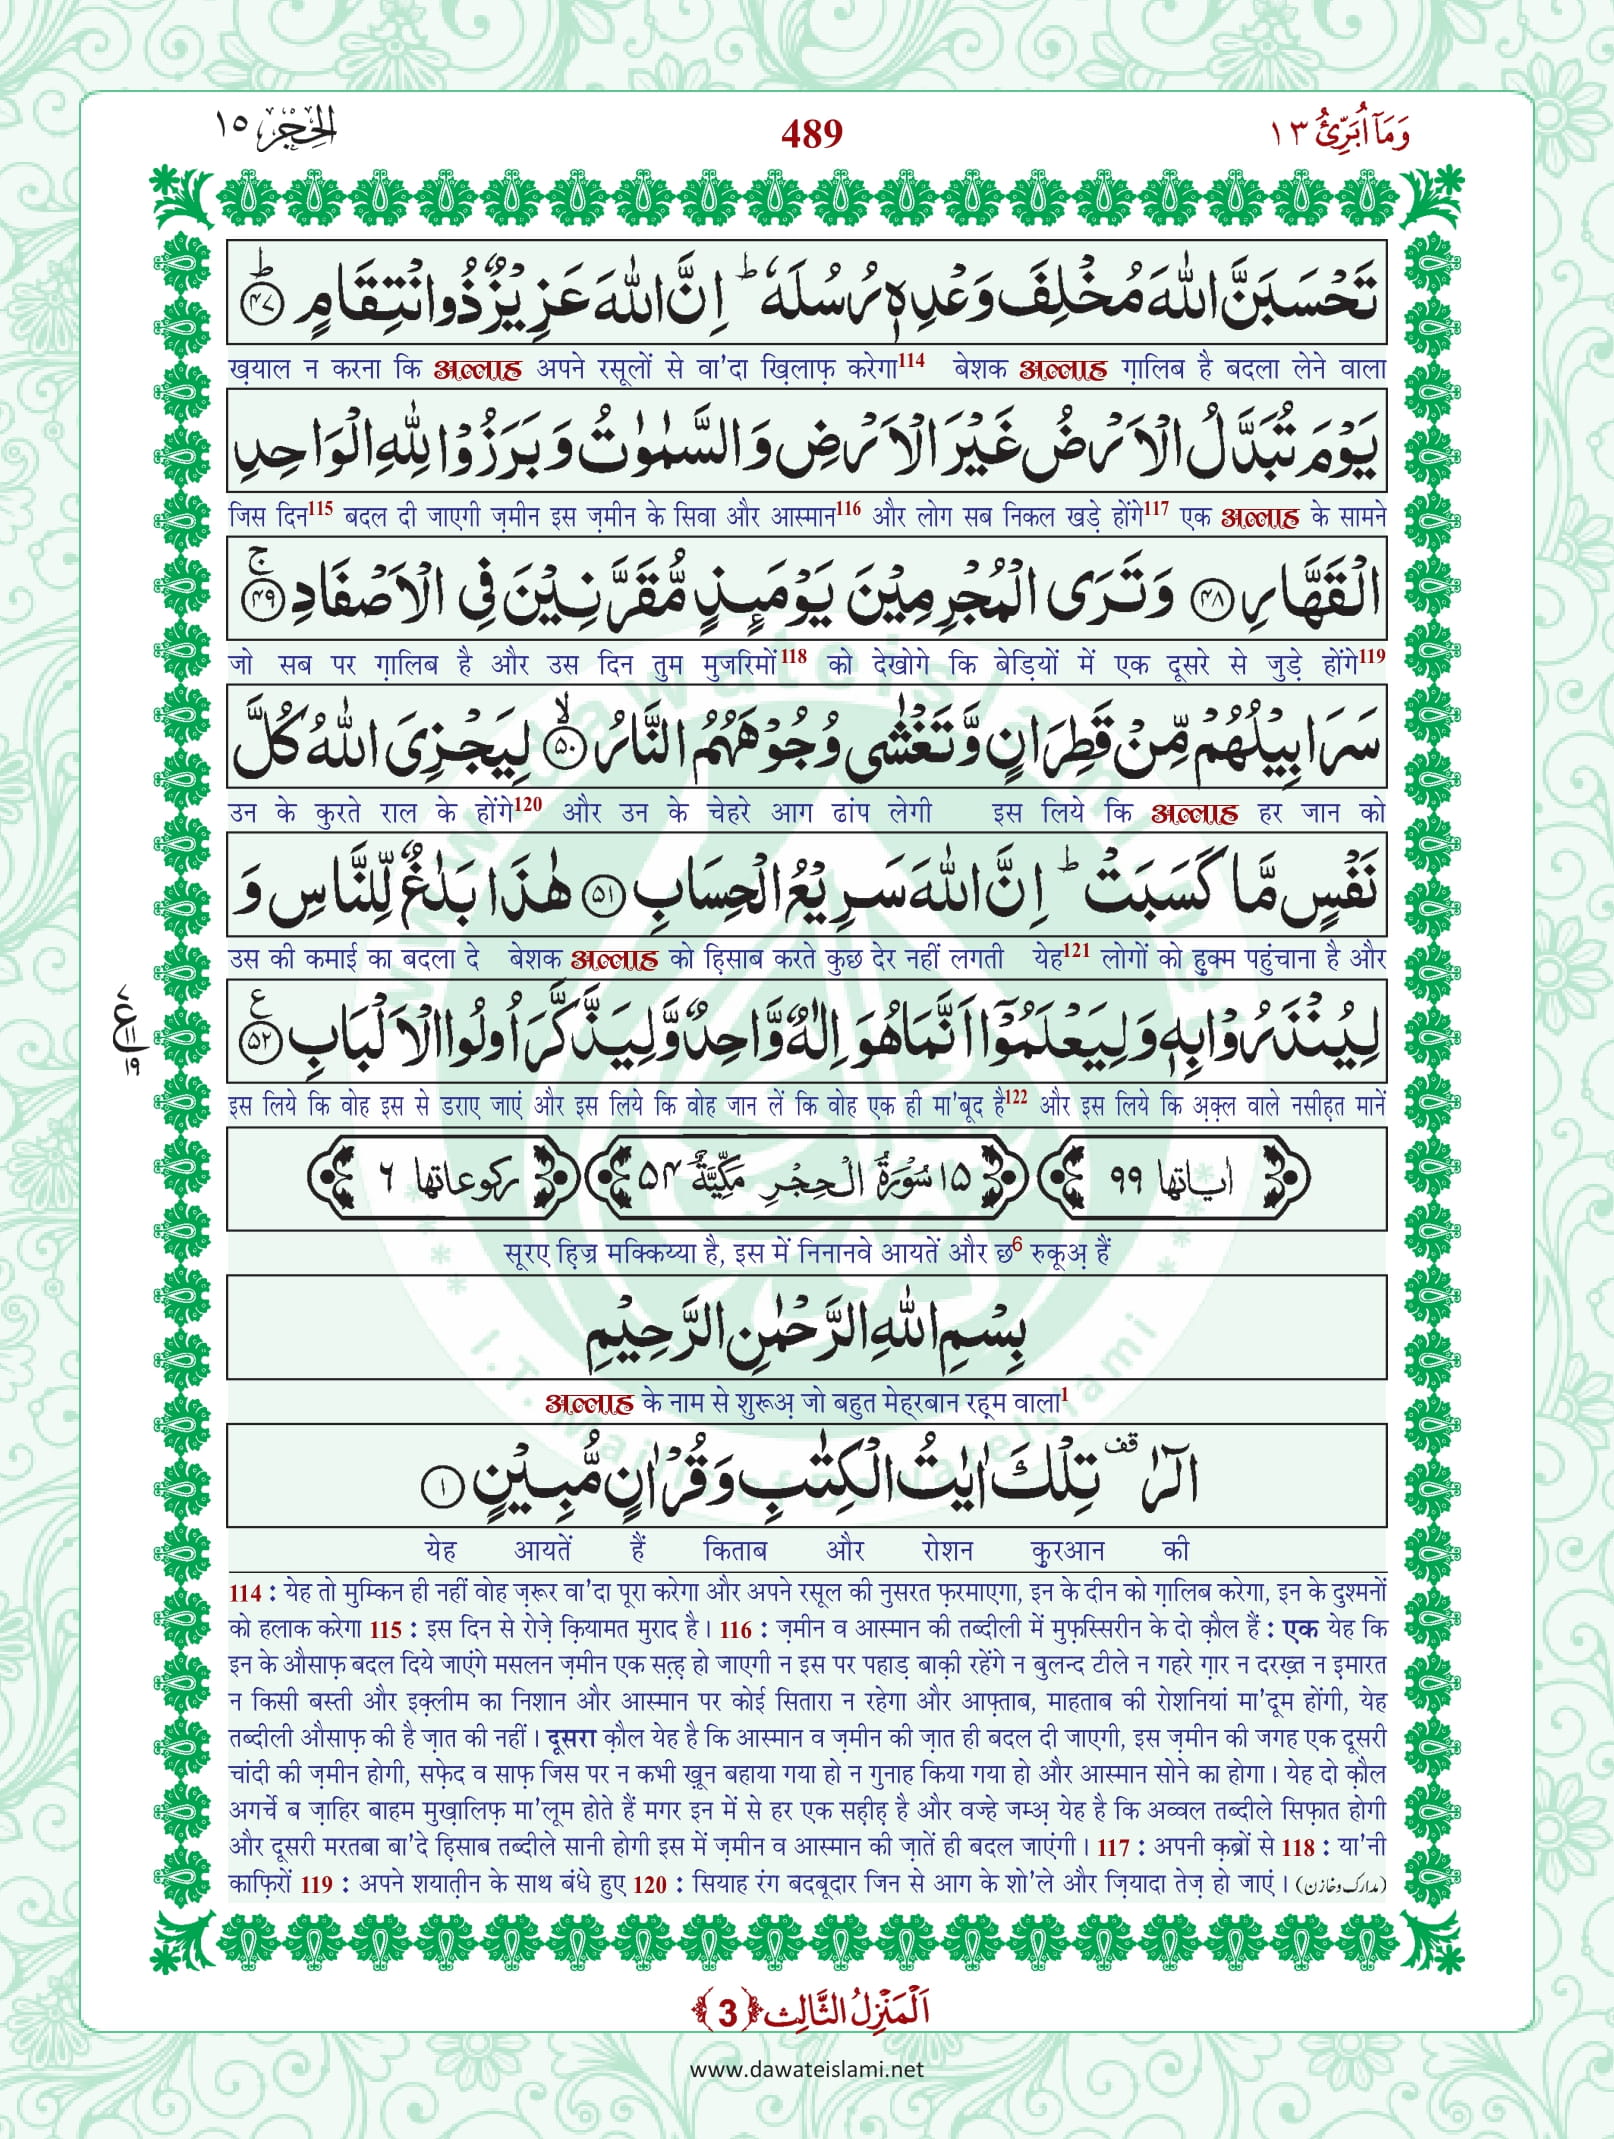 وَمَاۤ اُبَرِّئُ ١٣
489
اَلْحِجْر ١٥
تَحْسَبَنَّ اللّٰهَ مُخْلِفَ وَعْدِهٖ رُسُلَهٗ ؕ اِنَّ اللّٰهَ عَزِیْزٌ ذُو انْتِقَامٍ ﴿۴۷﴾ؕ
ख़याल न करना कि अल्लाह अपने रसूलों से वा'दा ख़िलाफ़ करेगा114 बेशक अल्लाह ग़ालिब है बदला लेने वाला
یَوْمَ تُبَدَّلُ الْاَرْضُ غَیْرَ الْاَرْضِ وَ السَّمٰوٰتُ وَ بَرَزُوْا لِلّٰهِ الْوَاحِدِ
जिस दिन115 बदल दी जाएगी ज़मीन इस ज़मीन के सिवा और आस्मान116 और लोग सब निकल खड़े होंगे117 एक अल्लाह के सामने
الْقَهَّارِ ﴿۴۸﴾ وَ تَرَی الْمُجْرِمِیْنَ یَوْمَىِٕذٍ مُّقَرَّنِیْنَ فِی الْاَصْفَادِ ﴿۴۹﴾ۚ
जो सब पर ग़ालिब है और उस दिन तुम मुजरिमों118 को देखोगे कि बेड़ियों में एक दूसरे से जुड़े होंगे119
سَرَابِیْلُهُمْ مِّنْ قَطِرَانٍ وَّ تَغْشٰى وُجُوْهَهُمُ النَّارُ ﴿۵۰﴾ۙ لِیَجْزِیَ اللّٰهُ كُلَّ
उन के कुरते राल के होंगे120 और उन के चेहरे आग ढांप लेगी इस लिये कि अल्लाह हर जान को
نَفْسٍ مَّا كَسَبَتْ ؕ اِنَّ اللّٰهَ سَرِیْعُ الْحِسَابِ ﴿۵۱﴾ هٰذَا بَلٰغٌ لِّلنَّاسِ وَ
उस की कमाई का बदला दे बेशक अल्लाह को हि़साब करते कुछ देर नहीं लगती येह121 लोगों को हुक्म पहुंचाना है और
لِیُنْذَرُوْا بِهٖ وَ لِیَعْلَمُوْۤا اَنَّمَا هُوَ اِلٰهٌ وَّاحِدٌ وَّ لِیَذَّكَّرَ اُولُوا الْاَلْبَابِ ﴿۵۲﴾ع
ع ١١ ١٩
इस लिये कि वोह इस से डराए जाएं और इस लिये कि वोह जान लें कि वोह एक ही मा'बूद है122 और इस लिये कि अ़क़्ल वाले नसीह़त मानें
اٰیاتها ٩٩ ١٥ سُوْرَةُ الْحِجْرِ مَكِّیَّةٌ ۵۴ رکوعاتها ٦
सूरए ह़िज्र मक्किय्या है, इस में निनानवे आयतें और छ6 रुकूअ़ हैं
بِسْمِ اللّٰهِ الرَّحْمٰنِ الرَّحِیْمِ
अल्लाह के नाम से शुरूअ़ जो बहुत मेह्रबान रह़्म वाला1
الٓرٰ ۫ تِلْكَ اٰیٰتُ الْكِتٰبِ وَ قُرْاٰنٍ مُّبِیْنٍ ﴿۱﴾
येह आयतें हैं किताब और रोशन क़ुरआन की
114 : येह तो मुम्किन ही नहीं वोह ज़रूर वा'दा पूरा करेगा और अपने रसूल की नुसरत फ़रमाएगा, इन के दीन को ग़ालिब करेगा, इन के दुश्मनों
को हलाक करेगा 115 : इस दिन से रोज़े क़ियामत मुराद है। 116 : ज़मीन व आस्मान की तब्दीली में मुफ़स्सिरीन के दो क़ौल हैं : एक येह कि
इन के औसाफ़ बदल दिये जाएंगे मसलन ज़मीन एक सत़्ह़ हो जाएगी न इस पर पहाड़ बाक़ी रहेंगे न बुलन्द टीले न गहरे ग़ार न दरख़्त न इमारत
न किसी बस्ती और इक़्लीम का निशान और आस्मान पर कोई सितारा न रहेगा और आफ़्ताब, माहताब की रोशनियां मा'दूम होंगी, येह
तब्दीली औसाफ़ की है ज़ात की नहीं। दूसरा क़ौल येह है कि आस्मान व ज़मीन की ज़ात ही बदल दी जाएगी, इस ज़मीन की जगह एक दूसरी
चांदी की ज़मीन होगी, सफ़ेद व साफ़ जिस पर न कभी ख़ून बहाया गया हो न गुनाह किया गया हो और आस्मान सोने का होगा। येह दो क़ौल
अगर्चे ब ज़ाहिर बाहम मुख़ालिफ़ मा'लूम होते हैं मगर इन में से हर एक सह़ीह़ है और वज्हे जम्अ़ येह है कि अव्वल तब्दीले सिफ़ात होगी
और दूसरी मरतबा बा'दे हि़साब तब्दीले सानी होगी इस में ज़मीन व आस्मान की ज़ातें ही बदल जाएंगी। 117 : अपनी क़ब्रों से 118 : या'नी
काफ़िरों 119 : अपने शयात़ीन के साथ बंधे हुए 120 : सियाह रंग बदबूदार जिन से आग के शो'ले और ज़ियादा तेज़ हो जाएं। (مدارک وخازن)
اَلْمَنْزِلُ الثَّالِث ﴿3﴾
www.dawateislami.net